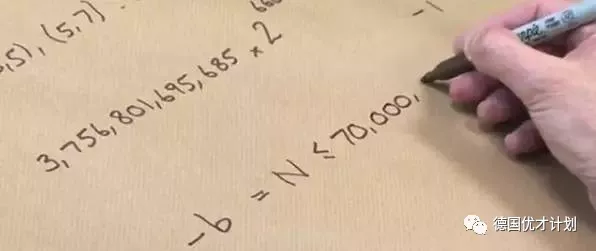 ,5), (5,7)
3,756,801,695,685 × 2
666
-1
-b = N ≤ 70,000,
德国优才计划